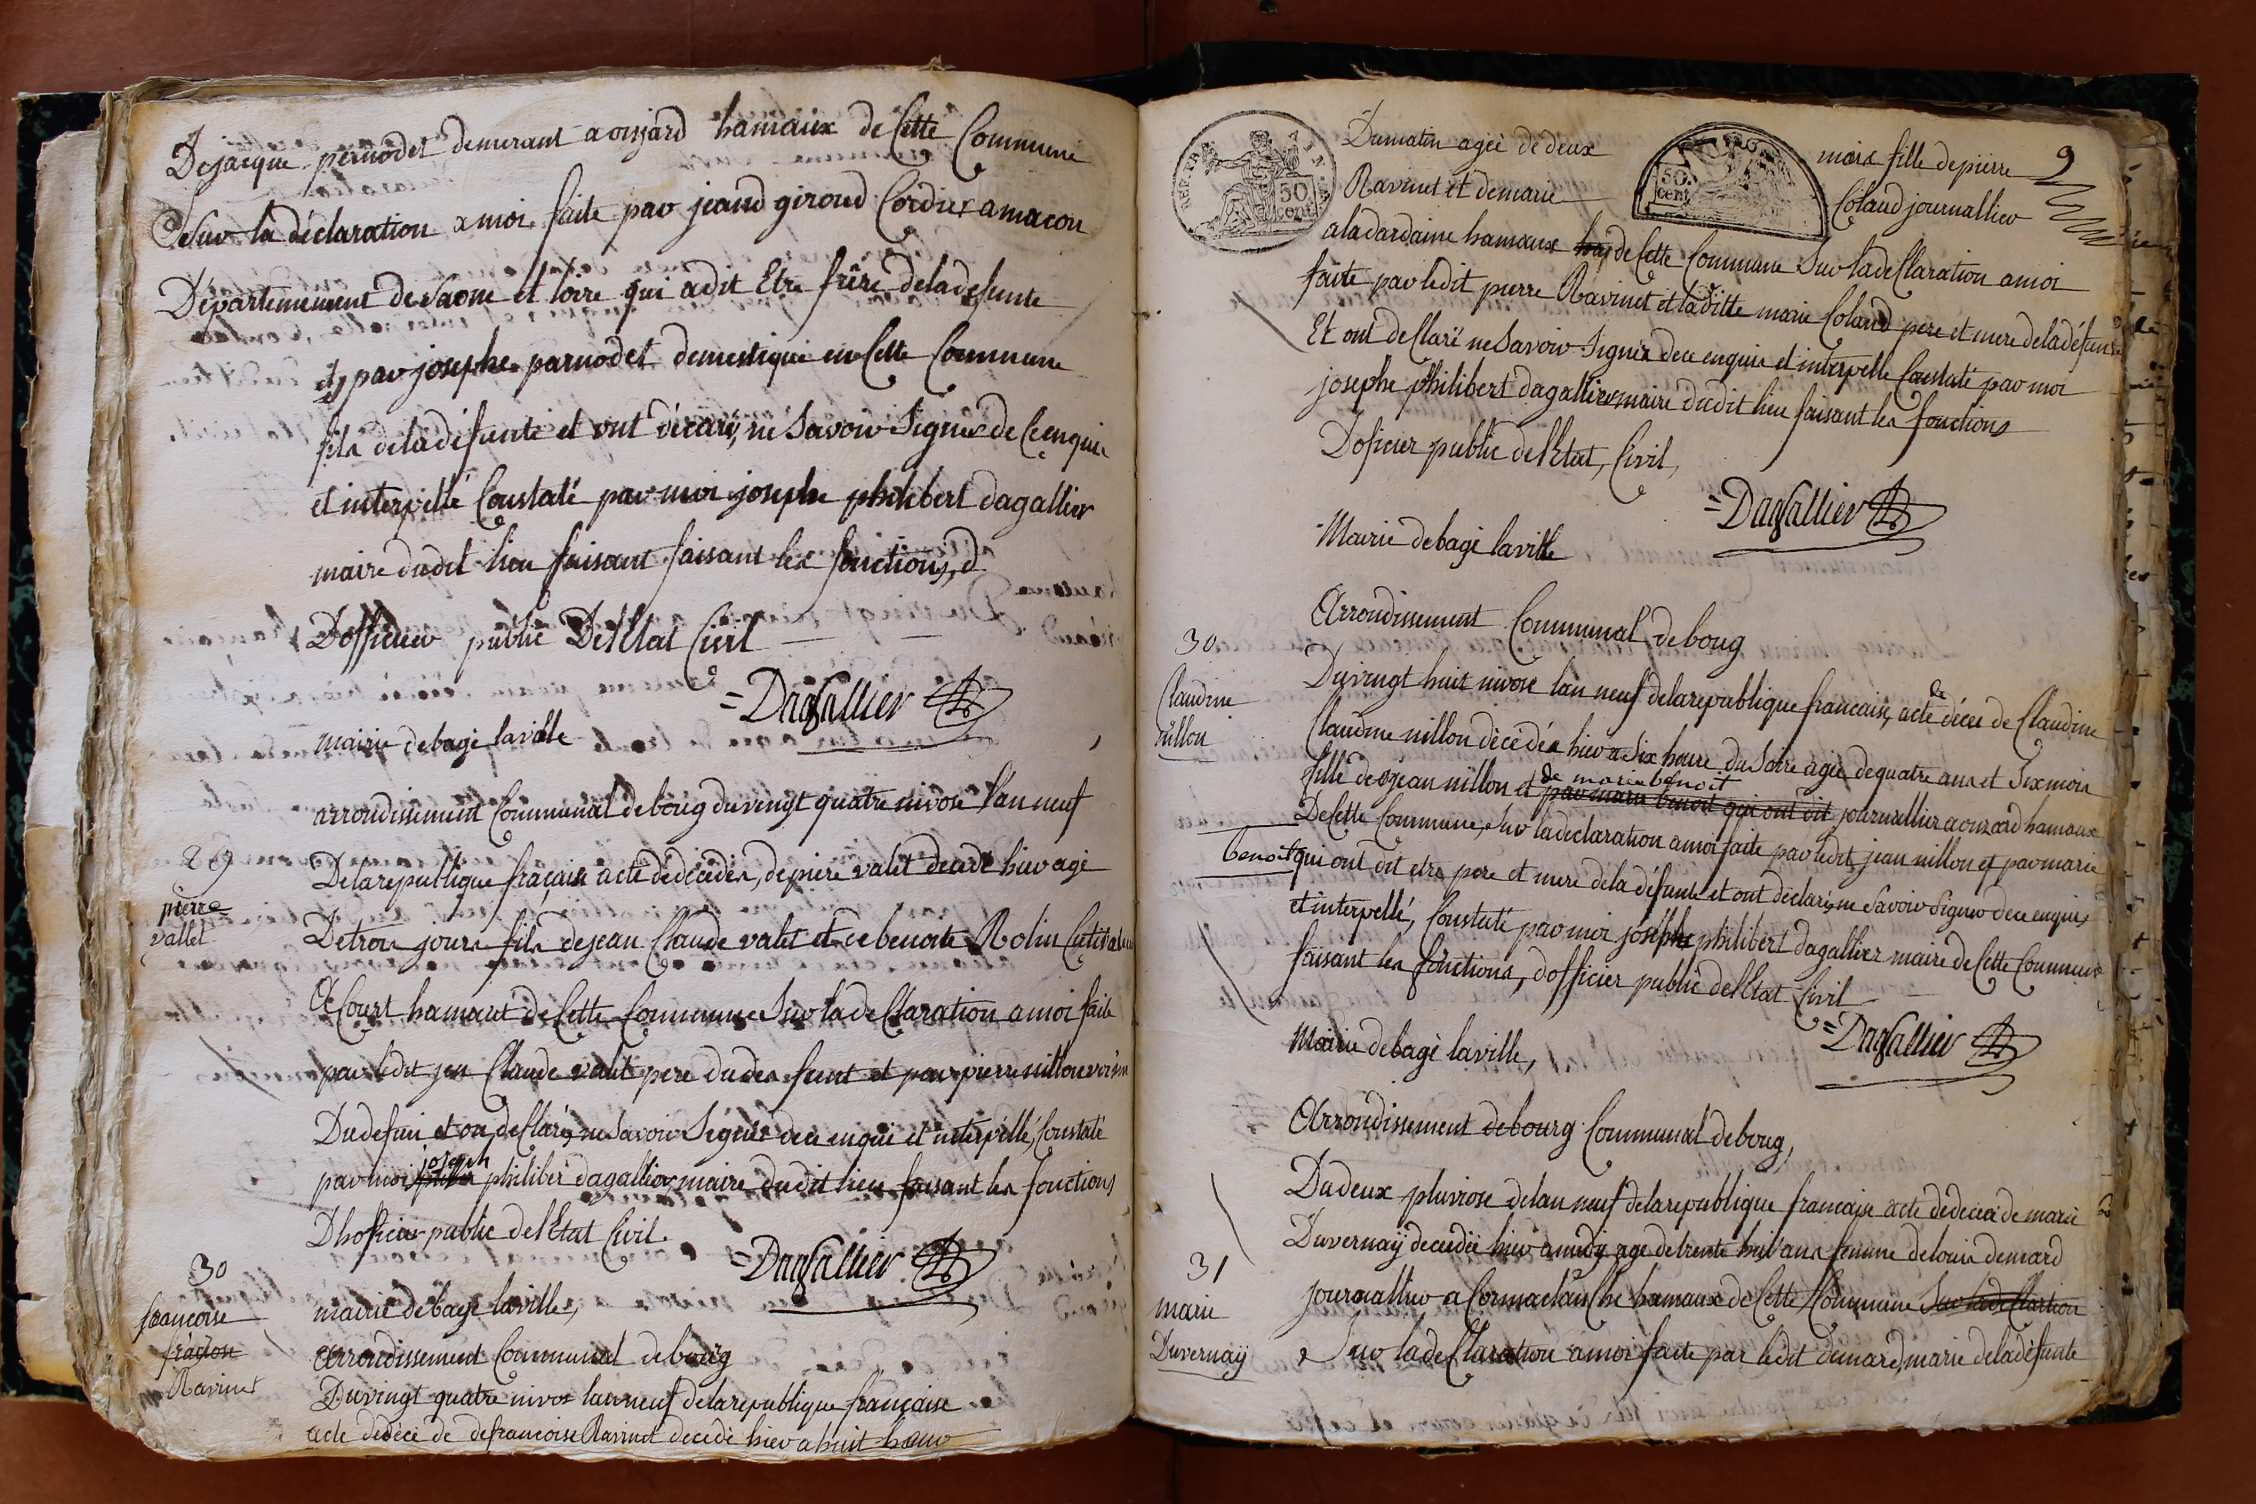 Dejacque pernodet demurant a onjard hamaux de Cette Commune
Sur la déclaration a moi faite par jeand giroud Cordier a macon
Departemement de Saone et loire qui adit Etre frére deladefunte
et par josephe parnodet demestique en Cette Commune
fils deladéfunte et ont décaré, ne Savoir Signer de Ce enquis
et interpellé Constaté par moi josephe philibert dagallier
maire dudit lieu faisant faisant les fonctions, d
Dofficier public De l'Etat Civil
= DagCallier
mairie debagé laville
arrondissement Communal deboug duvingt quatre nivose l'an neuf
29
pierre
vallet
Delarepublique fraçaise acte dedecedés, de pierre valet decedé hier agé
Detrois jours fils dejean Claude valet et de benoite Rolin Cultivateur
A Court hamaut de Cette Commune Sur la de Claration a moi faite
par ledit jen Claude valet pere dudes funt et par pierre nillon voisin
Dudefun et on de Claré, ne Savoir Signer dece enqui et interpéllé, Constaté
joseph
par moi philiber dagallier maire dudit lieu faisant les fonctions
Dhoficier public de l'Etat Civil.
= DagCallier
30
francoise
Ravinet
mairie debagé laville,
arrondissement Communal de bourg
Duvingt quatre nivos lan neuf delarepublique française
acte dedécé de defrancoise Ravinet decedé hier a huit heur
9
50 cent
50. cent
Dumatin ageé de deux mois fille depierre
Ravinet et demarie Coland journallier
aladardaine hamaux de Cette Commune Sur lade Claration amoi
faite par ledit pierre Ravinet et laditte marie Coland pere et mere deladéfunte
Et ont de Claré ne Savoir Signer dece enquis et interpelle Constaté par moi
josephe philibert dagallier maire dudit lieu faisant les fonctions
Doficier public de l'Etat, Civil,
= DagCallier
Mairie debagé laville
Arrondissement Communal, de boug
30
Claudine
nillon
Duvingt huit nivose lan neuf delarepublique francaise, acte de décée de Claudine
Claudine nillon décédés hier a Six heure du Soire agée dequatre ans et Six mois
de marie benoit
fille de jean nillon et par marie benoit qui ont dit journallier a ouzard hamaux
De Cette Commune, Sur ladeclaration amoi faite par ledit, jean nillon et par marie
benoit qui ont dit etre pere et mere dela défunte et ont déclaré, ne Savoir Signer dece enquis
et interpellé, Constaté par moi joséphe philibert dagallier maire de Cette Commune
faisant les fonctions, dofficier public de l'Etat Civil
= DagCallier
Mairie debagé laville,
Arrondissement debourg Communal deboug,
Dudeux pluviose delan neuf delarepublique francaise acte dedeces de marie
31
marie
Duvernaÿ
Duvernaÿ decedée hier amidy agé detrente huit ans femme delouis demard
journallier a Hamaux de Cette Commune Sur la de Clartion
Sur lade Claration a moi faite par ledit demard, marie deladéfunte